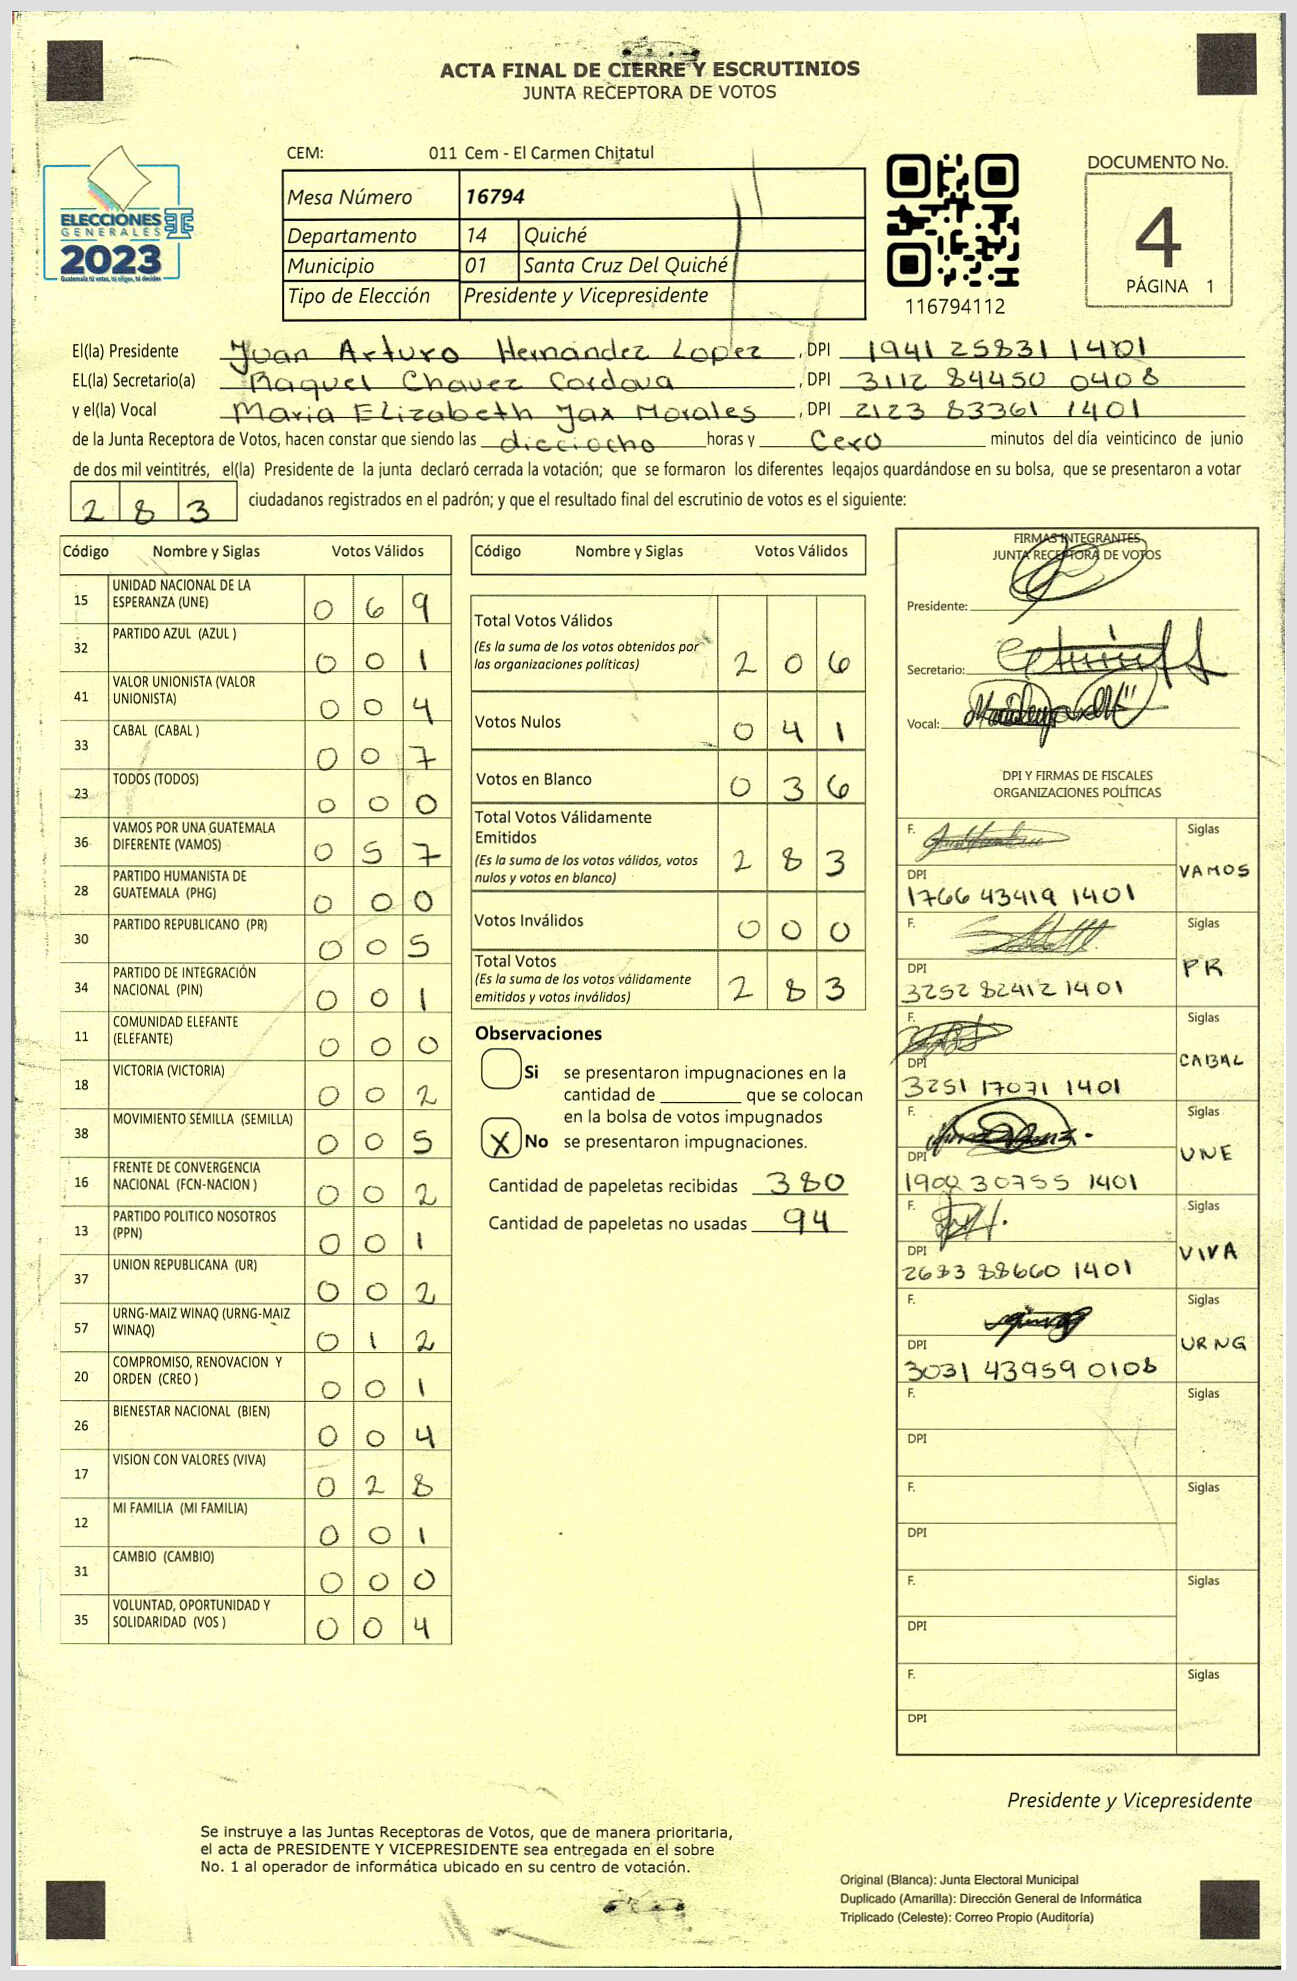 ACTA FINAL DE CIERRE Y ESCRUTINIOS
JUNTA RECEPTORA DE VOTOS
ELECCIONES
GENERALES
2023
Guatemala tú votas, tú eliges, tú decides
CEM: 011 Cem - El Carmen Chitatul
Mesa Número 16794
Departamento 14 Quiché
Municipio 01 Santa Cruz Del Quiché
Tipo de Elección Presidente y Vicepresidente
116794112
DOCUMENTO No.
4
PÁGINA 1
El(la) Presidente Juan Arturo Hernández Lopez, DPI 1941 25831 1401
EL(la) Secretario(a) Raquel Chavez Cordova, DPI 3112 84450 0408
y el(la) Vocal Maria Elizabeth Jax Morales, DPI 2123 83361 1401
de la Junta Receptora de Votos, hacen constar que siendo las dieciocho horas y Cero minutos del día veinticinco de junio
de dos mil veintitrés, el(la) Presidente de la junta declaró cerrada la votación; que se formaron los diferentes legajos guardándose en su bolsa, que se presentaron a votar
283 ciudadanos registrados en el padrón; y que el resultado final del escrutinio de votos es el siguiente:
Código Nombre y Siglas Votos Válidos
15 UNIDAD NACIONAL DE LA ESPERANZA (UNE) 0 6 9
32 PARTIDO AZUL (AZUL ) 0 0 1
41 VALOR UNIONISTA (VALOR UNIONISTA) 0 0 4
33 CABAL (CABAL ) 0 0 7
23 TODOS (TODOS) 0 0 0
36 VAMOS POR UNA GUATEMALA DIFERENTE (VAMOS) 0 5 7
28 PARTIDO HUMANISTA DE GUATEMALA (PHG) 0 0 0
30 PARTIDO REPUBLICANO (PR) 0 0 5
34 PARTIDO DE INTEGRACIÓN NACIONAL (PIN) 0 0 1
11 COMUNIDAD ELEFANTE (ELEFANTE) 0 0 0
18 VICTORIA (VICTORIA) 0 0 2
38 MOVIMIENTO SEMILLA (SEMILLA) 0 0 5
16 FRENTE DE CONVERGENCIA NACIONAL (FCN-NACION ) 0 0 2
13 PARTIDO POLITICO NOSOTROS (PPN) 0 0 1
37 UNION REPUBLICANA (UR) 0 0 2
57 URNG-MAIZ WINAQ (URNG-MAIZ WINAQ) 0 1 2
20 COMPROMISO, RENOVACION Y ORDEN (CREO ) 0 0 1
26 BIENESTAR NACIONAL (BIEN) 0 0 4
17 VISION CON VALORES (VIVA) 0 2 8
12 MI FAMILIA (MI FAMILIA) 0 0 1
31 CAMBIO (CAMBIO) 0 0 0
35 VOLUNTAD, OPORTUNIDAD Y SOLIDARIDAD (VOS ) 0 0 4
Código Nombre y Siglas Votos Válidos
Total Votos Válidos 2 0 6
(Es la suma de los votos obtenidos por
las organizaciones políticas)
Votos Nulos 0 4 1
Votos en Blanco 0 3 6
Total Votos Válidamente
Emitidos 2 8 3
(Es la suma de los votos válidos, votos
nulos y votos en blanco)
Votos Inválidos 0 0 0
Total Votos 2 8 3
(Es la suma de los votos válidamente
emitidos y votos inválidos)
Observaciones
Si se presentaron impugnaciones en la
cantidad de ________ que se colocan
en la bolsa de votos impugnados
X No se presentaron impugnaciones.
Cantidad de papeletas recibidas 380
Cantidad de papeletas no usadas 94
FIRMAS INTEGRANTES
JUNTA RECEPTORA DE VOTOS
Presidente:
Secretario:
Vocal:
DPI Y FIRMAS DE FISCALES
ORGANIZACIONES POLÍTICAS
F. Siglas
VAMOS
DPI
1766 43419 1401
F. Siglas
PR
DPI
3252 82412 1401
F. Siglas
CABAL
DPI
3251 17071 1401
F. Siglas
UNE
DPI
1902 30755 1401
F. Siglas
VIVA
DPI
2683 88660 1401
F. Siglas
URNG
DPI
3031 43959 0108
F. Siglas
DPI
F. Siglas
DPI
F. Siglas
DPI
F. Siglas
DPI
Presidente y Vicepresidente
Se instruye a las Juntas Receptoras de Votos, que de manera prioritaria,
el acta de PRESIDENTE Y VICEPRESIDENTE sea entregada en el sobre
No. 1 al operador de informática ubicado en su centro de votación.
Original (Blanca): Junta Electoral Municipal
Duplicado (Amarilla): Dirección General de Informática
Triplicado (Celeste): Correo Propio (Auditoría)